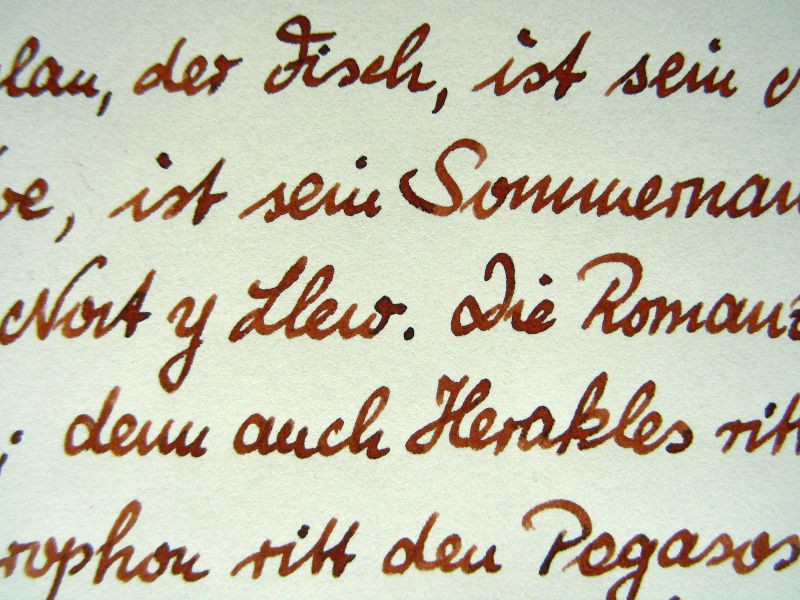 der Fisch, ist sein
ist sein Sommernam
Nort y Llew. Die Romanz
; denn auch Herakles ritt
rophon ritt den Pegasos